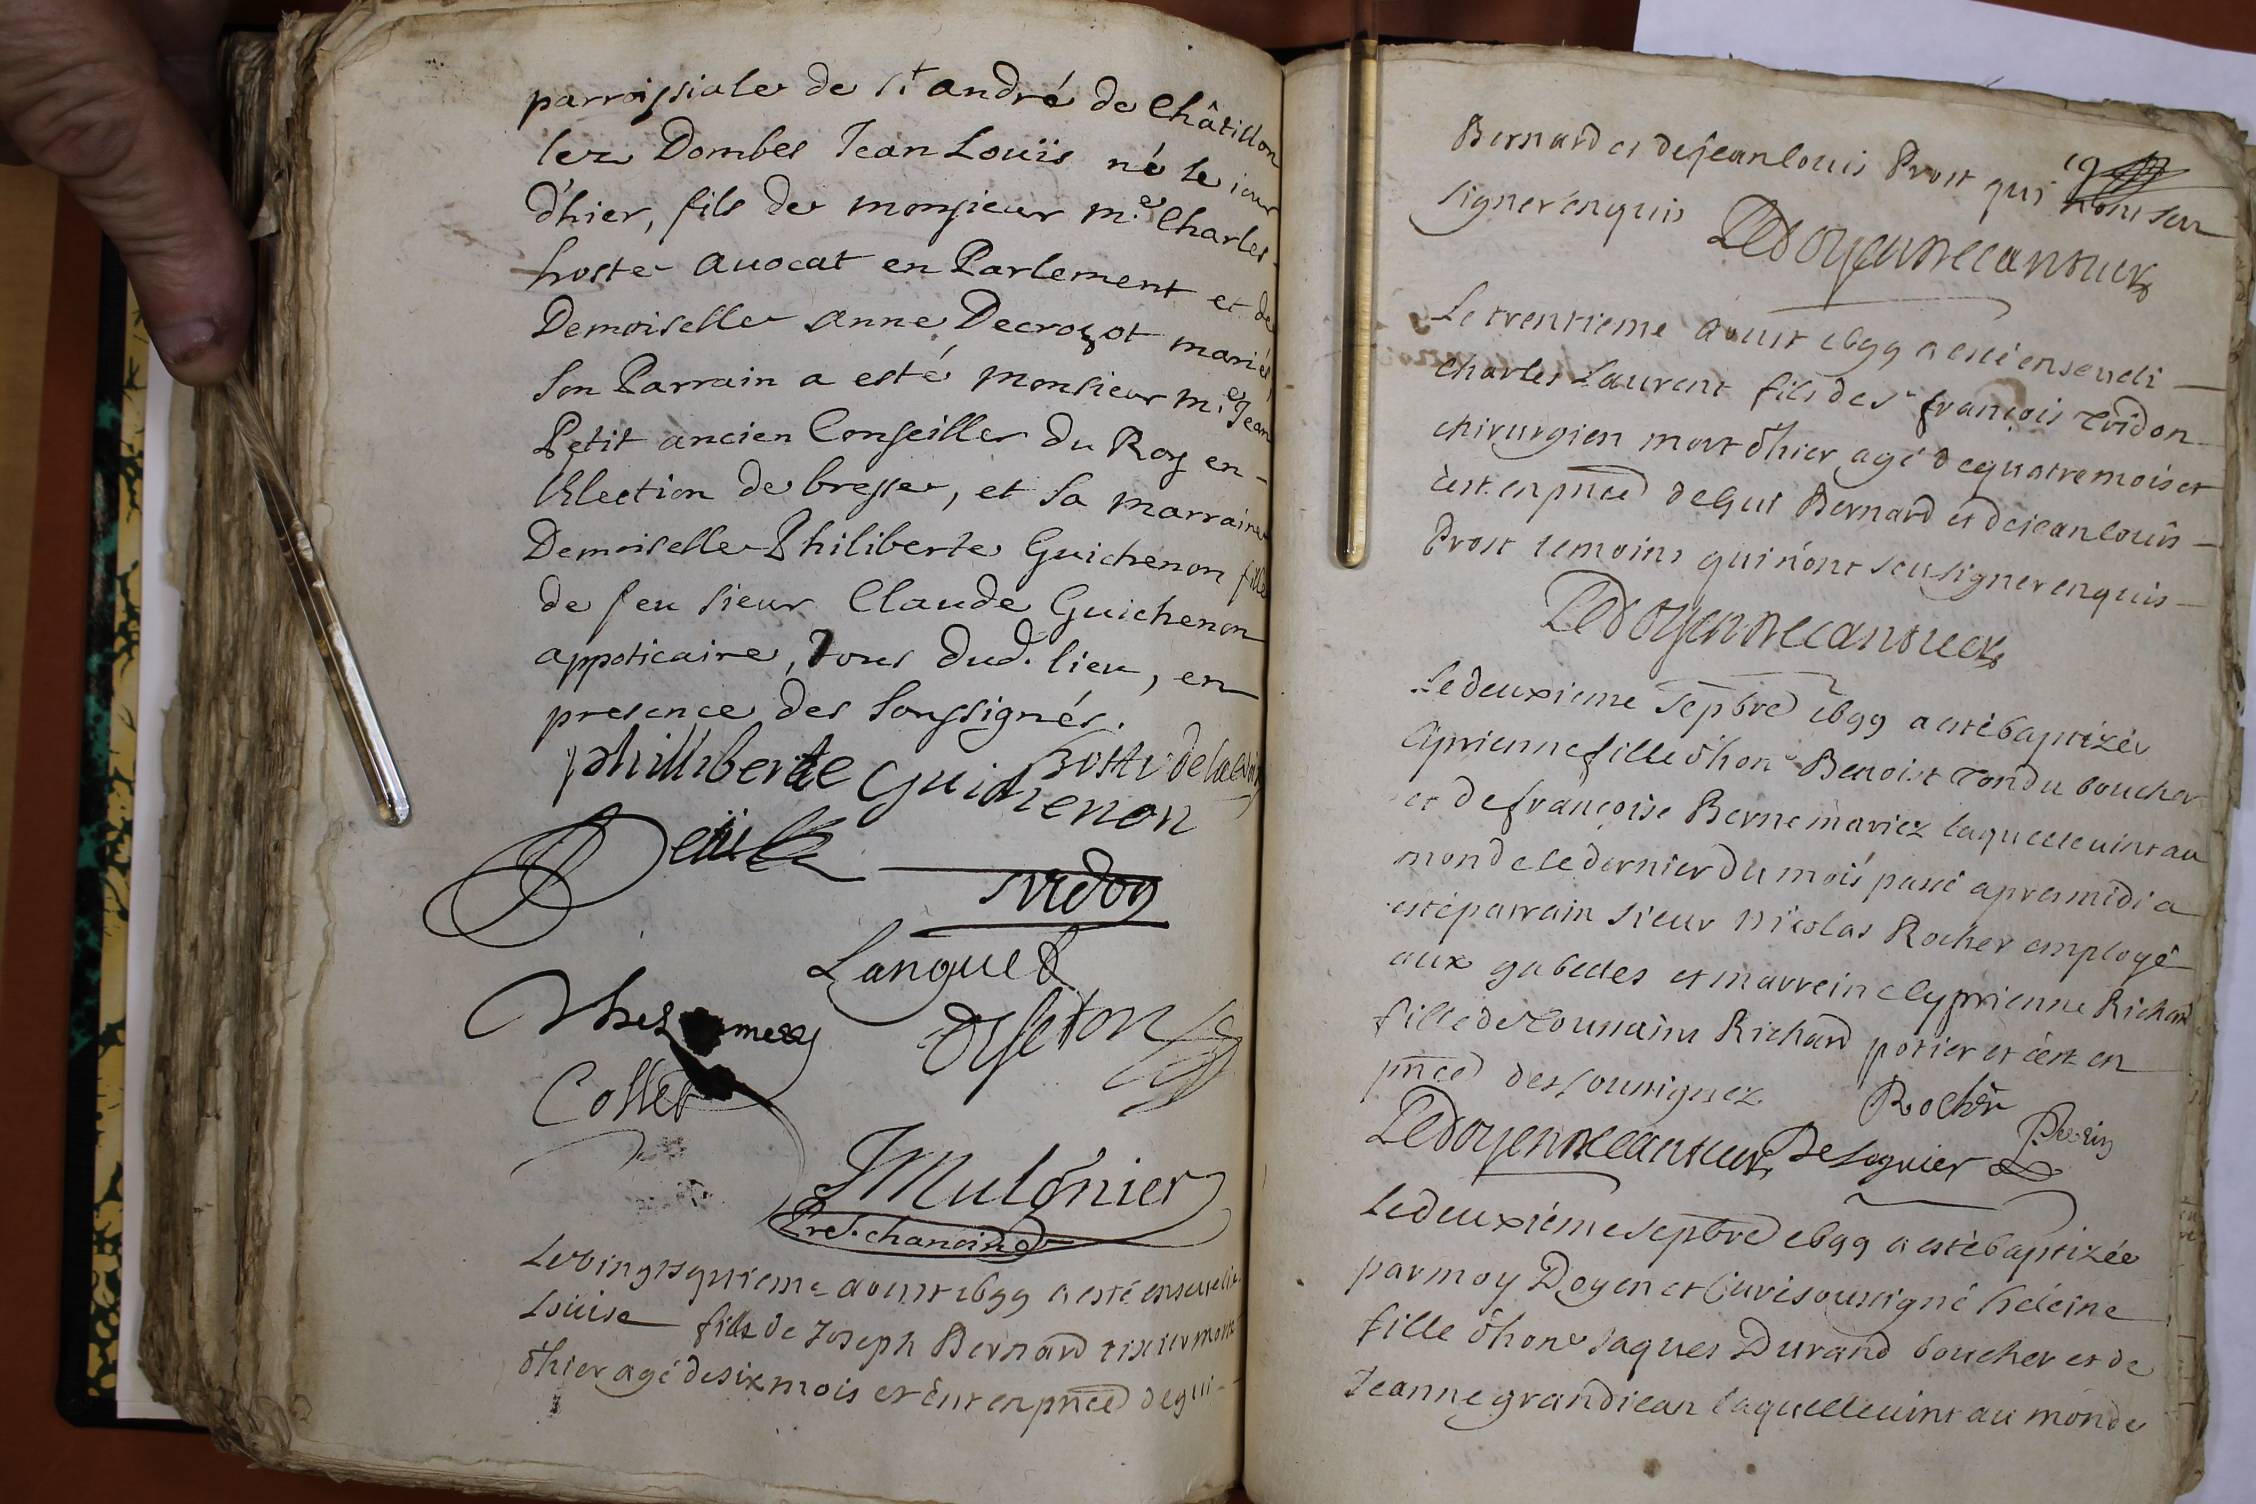 parroissiale de St André de Châtillon
lez Dombes Jean Louïs né le jour
d'hier, fils de monsieur m.e Charles
hoste avocat en Parlement et de
Demoiselle Anne Decrozot mariés
Son Parrain a esté monsieur m.e Jean
Petit ancien Conseiller du Roy en
l'Election de bresse, et Sa marraine
Demoiselle Philiberte Guichenon fille
de feu sieur Claude Guichenon
appoticaire, Tous dud. lieu, en
presence des Soussignés.
philliberte Guichenon
hoste
Petit
Languet
Collet
JMulonier
Pre. chanoine
Le vingtsquieme aoust 1699 a esté ensevelie
Louise fille de Joseph Bernard tixier morte
d'hier agé de six mois et c'est en pnce de gui
Bernard et de jean louis Prost qui n'ont seu
signer enquis
Ledoyen
Le trentieme aoust 1699 a esté enseveli
Charles Laurent fils de sr françois Tridon
chirurgien mort d'hier agé de quatre mois et
c'est en pnce de Gui Bernard et de jean louis
Prost temoins qui n'ont seu signer enquis
Ledoyen
Le deuxieme septbre 1699 a esté baptizée
Ciprienne fille d'hone Benoist Tondu boucher
et de françoise Berne mariez laquelle vint au
monde le dernier du mois passé apres midi a
esté parrain sieur Nicolas Rocher employé
aux gabelles et marreine Cyprienne Richard
fille de Toussains Richard potier et c'est en
pnce des soussignez
Rocher
Perrin
Ledoyen
Le deuxiéme septbre 1699 a esté baptizée
par moy Doyen et Curé soussigné heleine
fille d'hone Jaques Durand boucher et de
Jeanne grandjean laquelle vint au monde